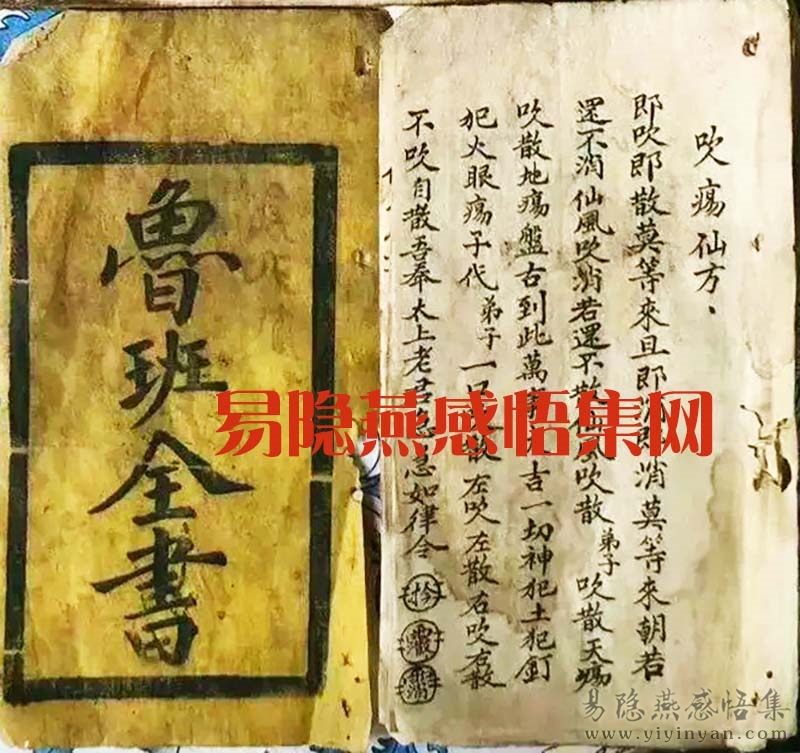 魯班全書
吹瘍仙方、
即吹即散莫等來且即消即消莫等來朝若
還不消仙風吹消若還不散仙風吹散弟子吹散天瘍
吹散地瘍盤古到此萬吉一切神犯土犯釘
犯火眼瘍子代弟子一口散左吹左散右吹右散
不吹自散吾奉太上老君急急如律令
易隐燕感悟集网
易隐燕感悟集
www.yiyinyan.com